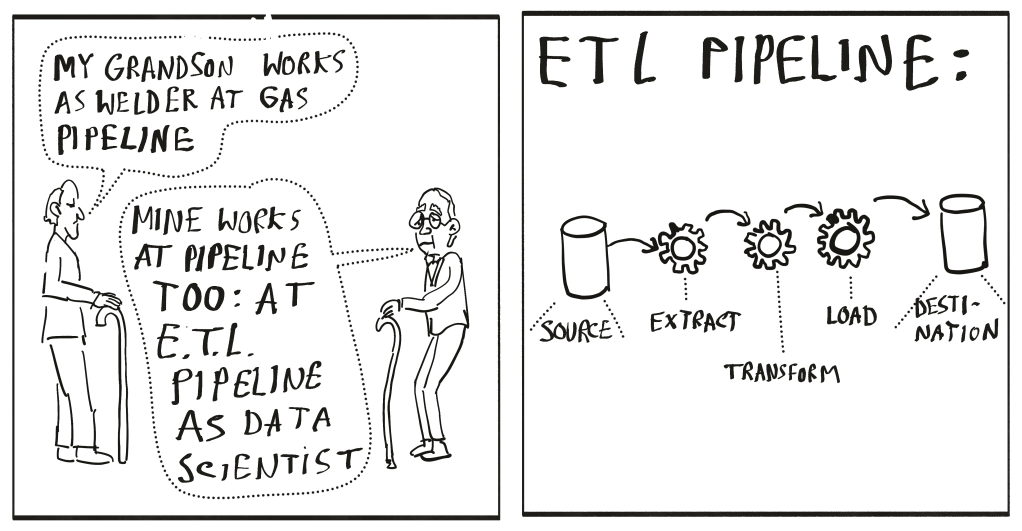 MY GRANDSON WORKS
AS WELDER AT GAS
PIPELINE
MINE WORKS
AT PIPELINE
TOO: AT
E.T.L.
PIPELINE
AS DATA
SCIENTIST
ETL PIPELINE:
SOURCE
EXTRACT
TRANSFORM
LOAD
DESTI-
NATION